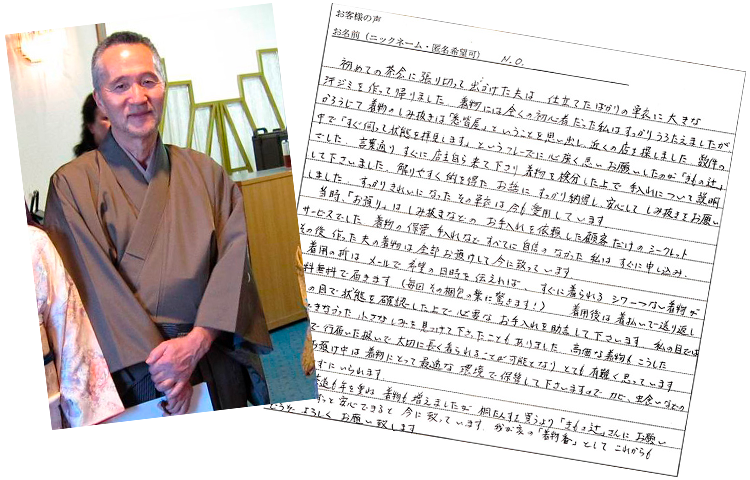 お客様の声
お名前(ニックネーム・匿名希望可) N.O.
初めての茶会に張り切って出かけた夫は 仕立てたばかりの単衣に大きな
汗ジミを作って帰りました 着物には全くの初心者だった私はすっかりうろたえましたが
かろうじて着物のしみ抜きは「悉皆屋」ということを思い出し、近くの店を探しました 数件の
中で「すぐ伺って状態を拝見します」というフレーズに心强く思いお願いしたのが「きもの辻」
でした 言葉通り、すぐに店主自ら来て下さり着物を検分した上で 手入れについて説明
して下さいました 解りやすく的を得た お話に すっかり納得し、安心して しみ抜きをお願い
しました すっかりきれいになった その単衣は今も愛用しています
当時、「お預り」は しみ抜きなどの お手入れを依頼した顧客だけの シークレット
サービスでした 着物の保管、手入れなど すべてに自信の なかった 私は すぐに申し込み、
その後 作った 夫の着物は 全部お預けして今に致っています
着用の折は メールで 希望の日時を 伝えれば すぐに着られる シワ一つない着物が
料無料で届きます(毎回その梱包の業に驚きます!) 着用後は着払いで送り返し
の目で状態を確認した上で 必要な お手入れを助言して下さいます 私の目では
きなかった、小さなしみを見つけて下さったことも ありました 高価な着物も こうした
で行届いた扱いで 大切に長く着られることが可能となり とても有難く思っています
お預け中は 着物にとって最適な 環境で保管して下さいますので カビ、虫食いなどの
ずにいられます
も年を重ね 着物も増えましたが 桐たんすを買うより「きもの辻」さんに お願い
ずっと安心できると 今に致っています 我が家の「着物番」として これからも
よろしく お願い致します